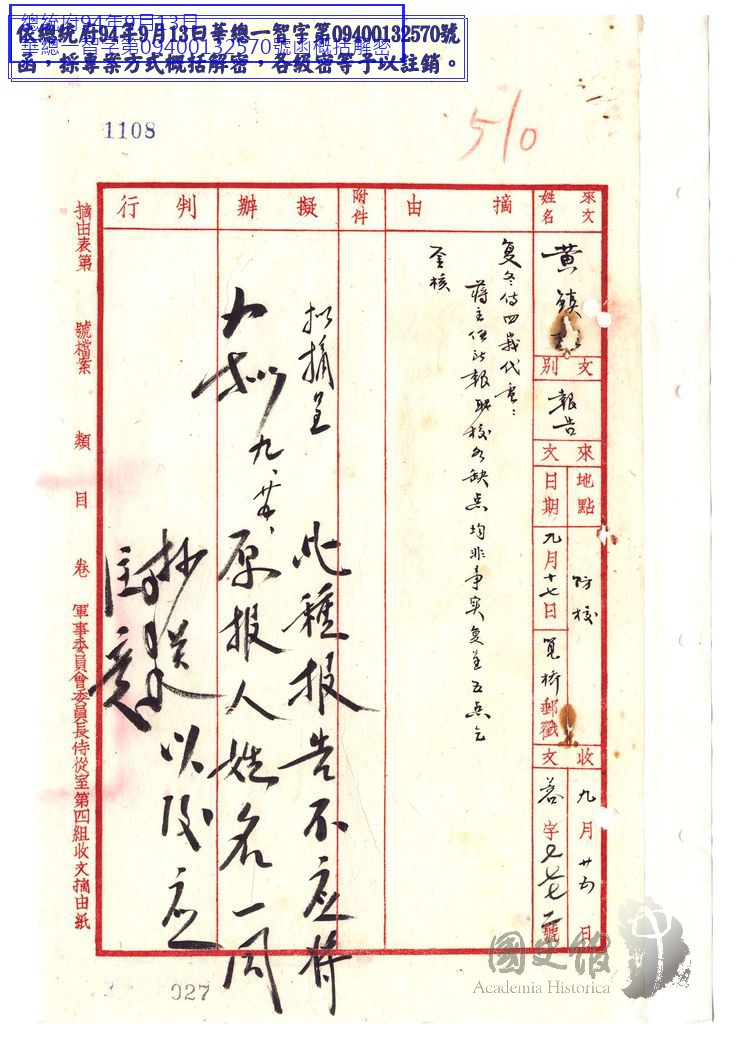 總統府94年9月13日
華總一智字第09400132570號函概括解密
依總統府94年9月13日華總一智字第09400132570號
函，採專案方式概括解密，各級密等予以註銷。
1108
510
來文
姓名
黃鎮
文別
報告
來文
地點
防校
日期
九月十七日
筧橋郵戳
收文
九月廿五日
字
號
摘由
复冬侍四嵗代电：
蔣主任所報職校各缺点均非事实复呈五点乞
鉴核
附件
擬辦
拟摘呈
九、廿五、
判行
此種报告不应将
原报人姓名一同
抄送以後应
注意
摘由表第
號檔案
類
目
卷
軍事委員會委員長侍從室第四組收文摘由紙
027
國史館
Academia Historica